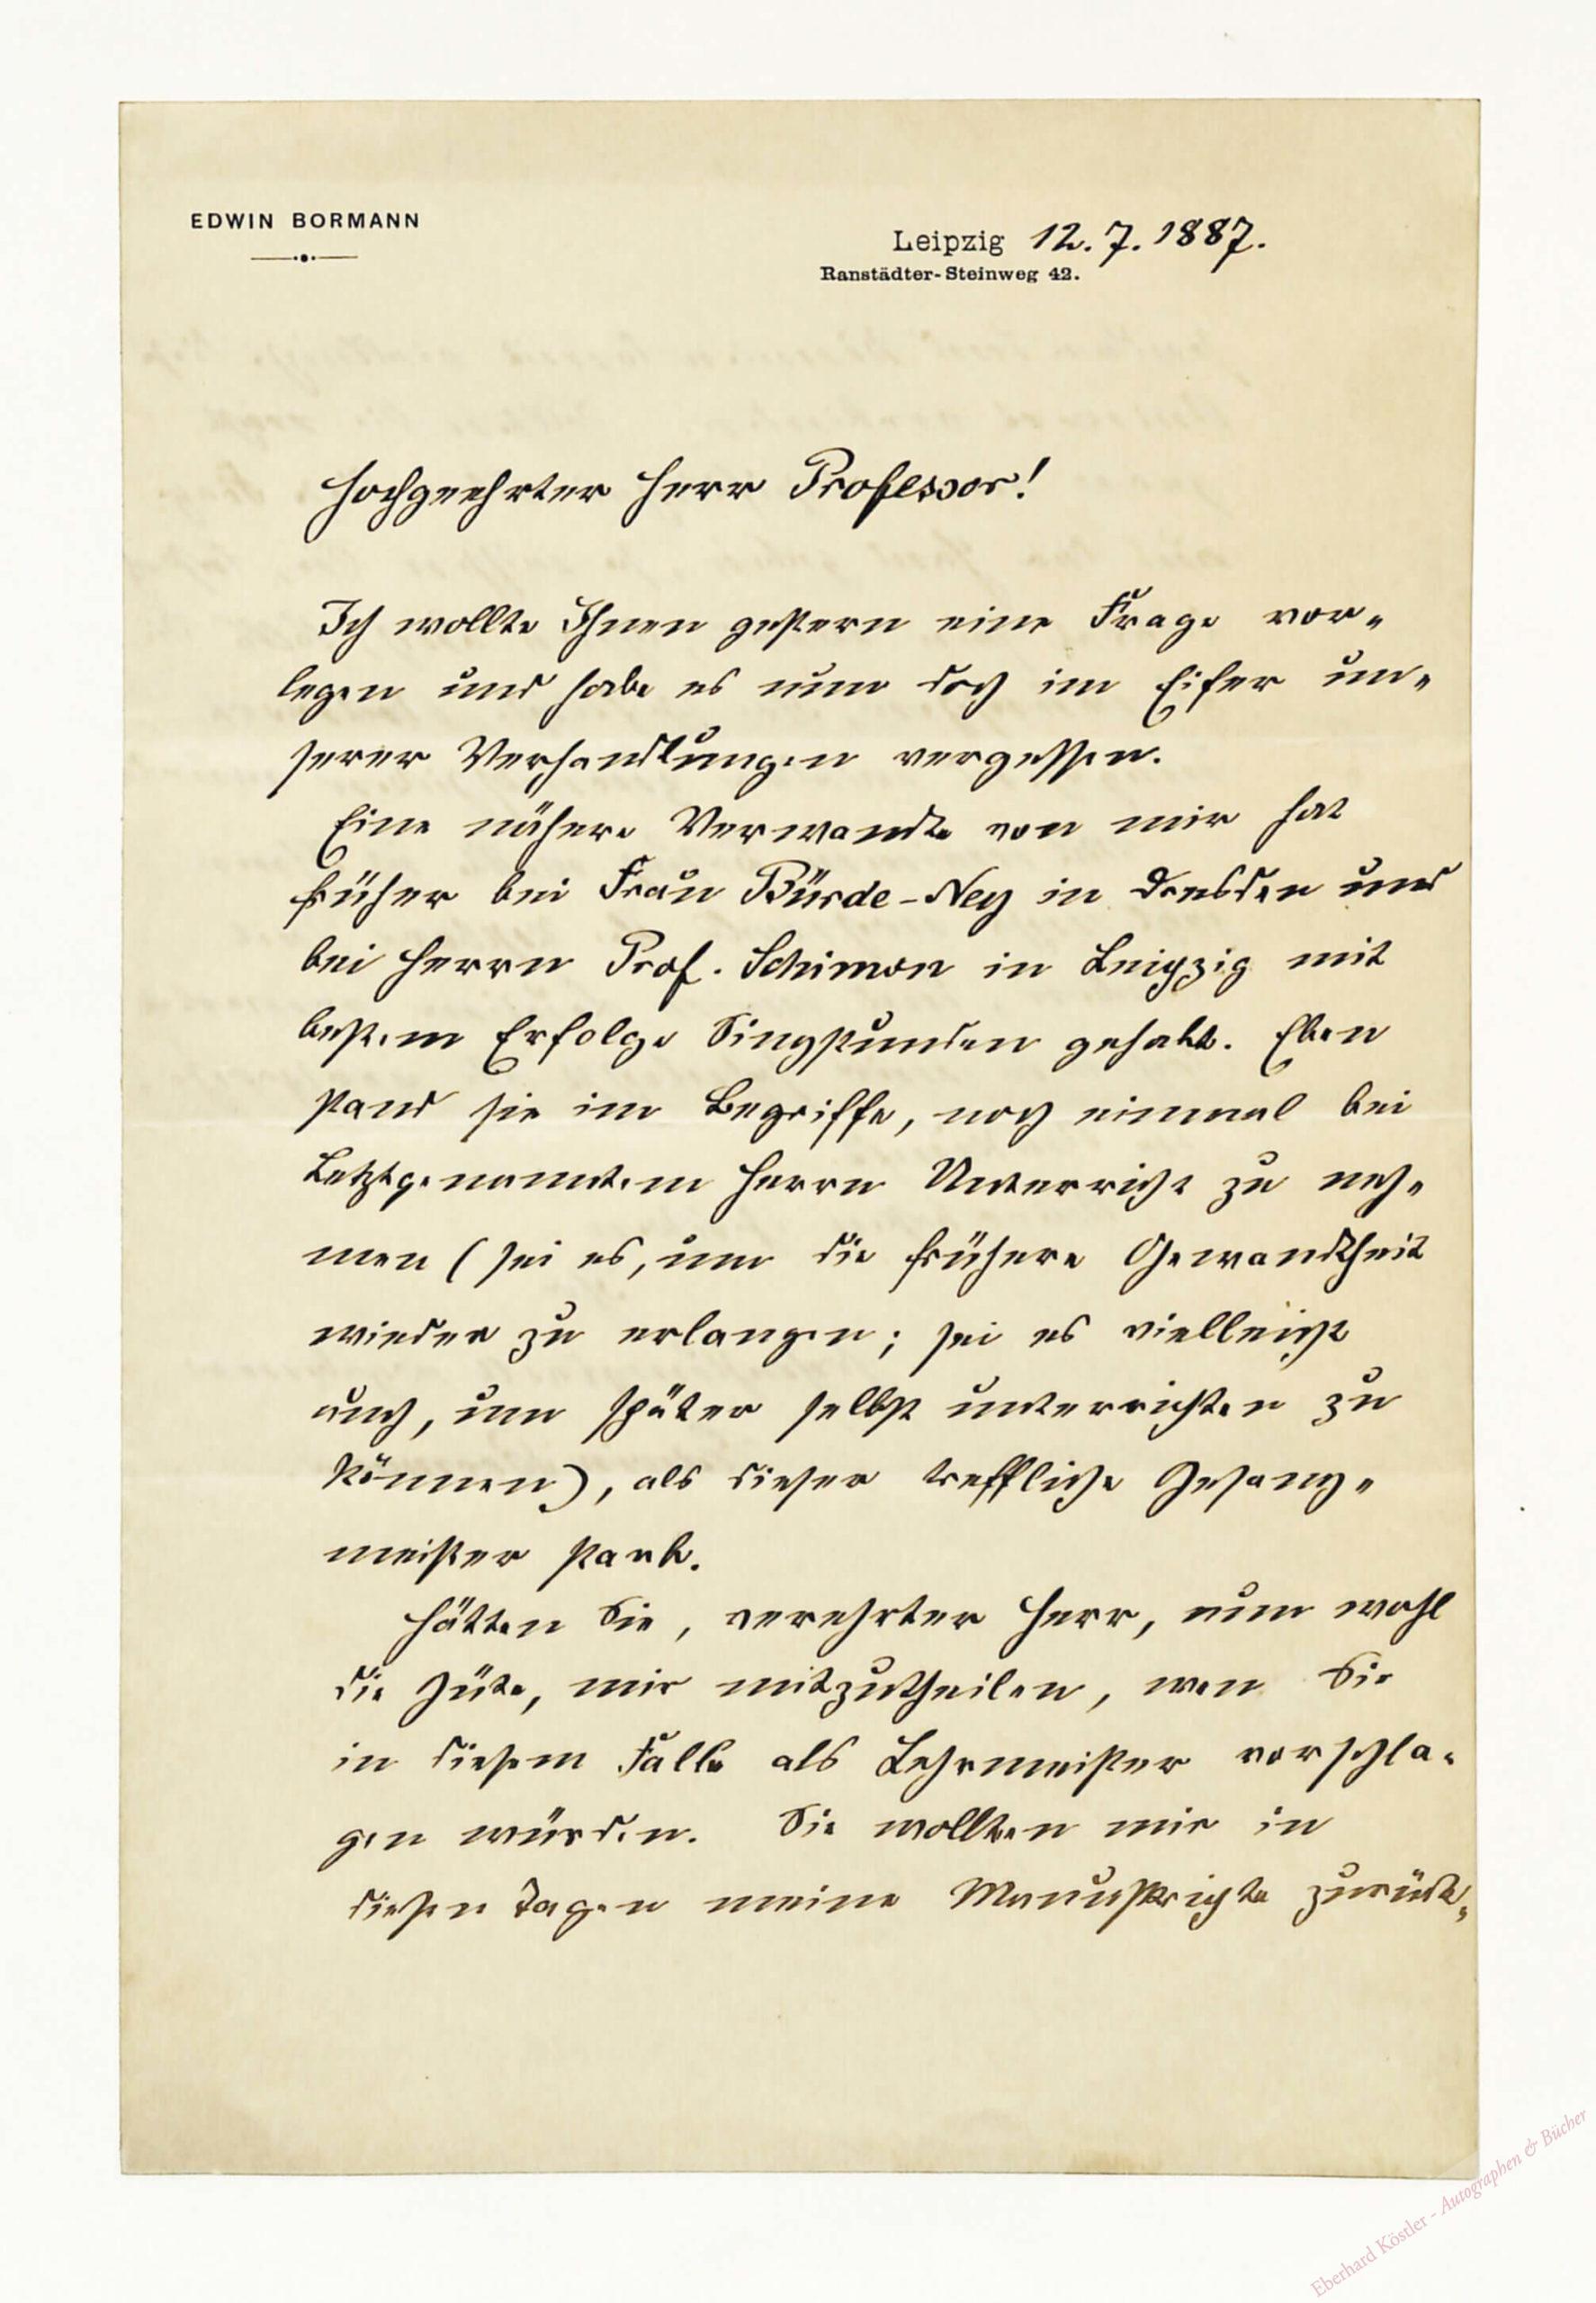 EDWIN BORMANN
Leipzig 12.7.1887.
Ranstädter-Steinweg 42.
Hochgeehrter Herr Professor!
Ich wollte Ihnen gestern eine Frage vor-
legen und habe es nun doch im Eifer un-
serer Verhandlungen vergessen.
Eine nähere Verwandte von mir hat
früher bei Frau Bürde-Ney in Dresden und
bei Herrn Prof. Schimon in Leipzig mit
bestem Erfolge Singstunden gehabt. Eben
stand sie im Begriffe, noch einmal bei
Letztgenanntem Herrn Unterricht zu neh-
men (sei es, um die frühere Gewandtheit
wieder zu erlangen; sei es vielleicht
auch, um später selbst unterrichten zu
können), als dieser treffliche Gesang-
meister starb.
Hätten Sie, verehrter Herr, nun wohl
die Güte, mir mitzutheilen, wen Sie
in diesem Falle als Lehrmeister vorschla-
gen würden. Sie wollten mir in
diesen Tagen meine Manuskripte zurück-
Eberhard Köstler - Autographen & Bücher